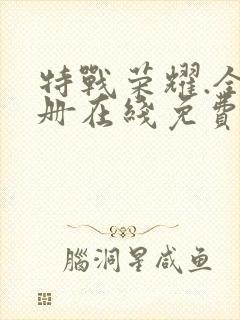 特戰荣耀.全
册在綫免費
腦洞星咸鱼